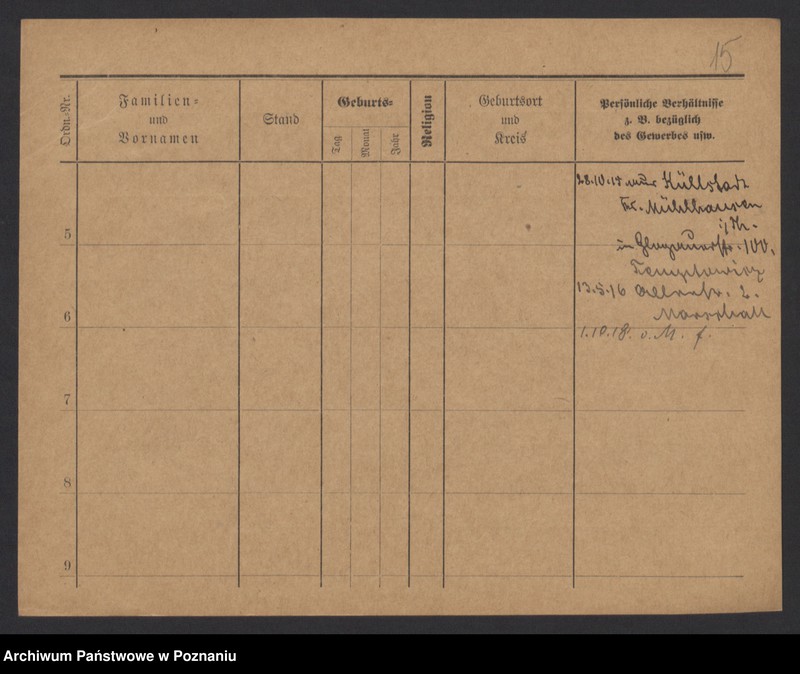 15
Ordn.-Nr.
Familien-
und
Vornamen
Stand
Geburts-
Tag
Monat
Jahr
Religion
Geburtsort
und
Kreis
Persönliche Verhältnisse
z. B. bezüglich
des Gewerbes usw.
Küllstadt
Kr. Mühlhausen
i/Th.
in Glogauerstr. 100.
5
13.5.16
2.
6
1.10.18. v. M. f.
7
8
9
Archiwum Państwowe w Poznaniu